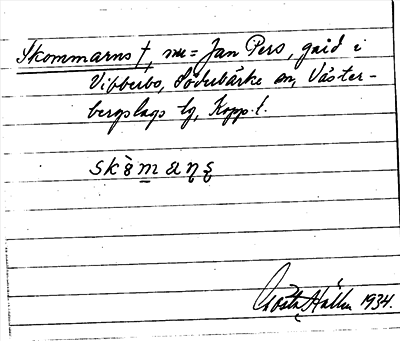 Skommarns †, nu = Jan Pers, gård i
Vibberbo, Söderbärke sn, Väster-
bergslags tg, Kopp. l.
skòmaṇṣ
Gösta Hallin 1934.